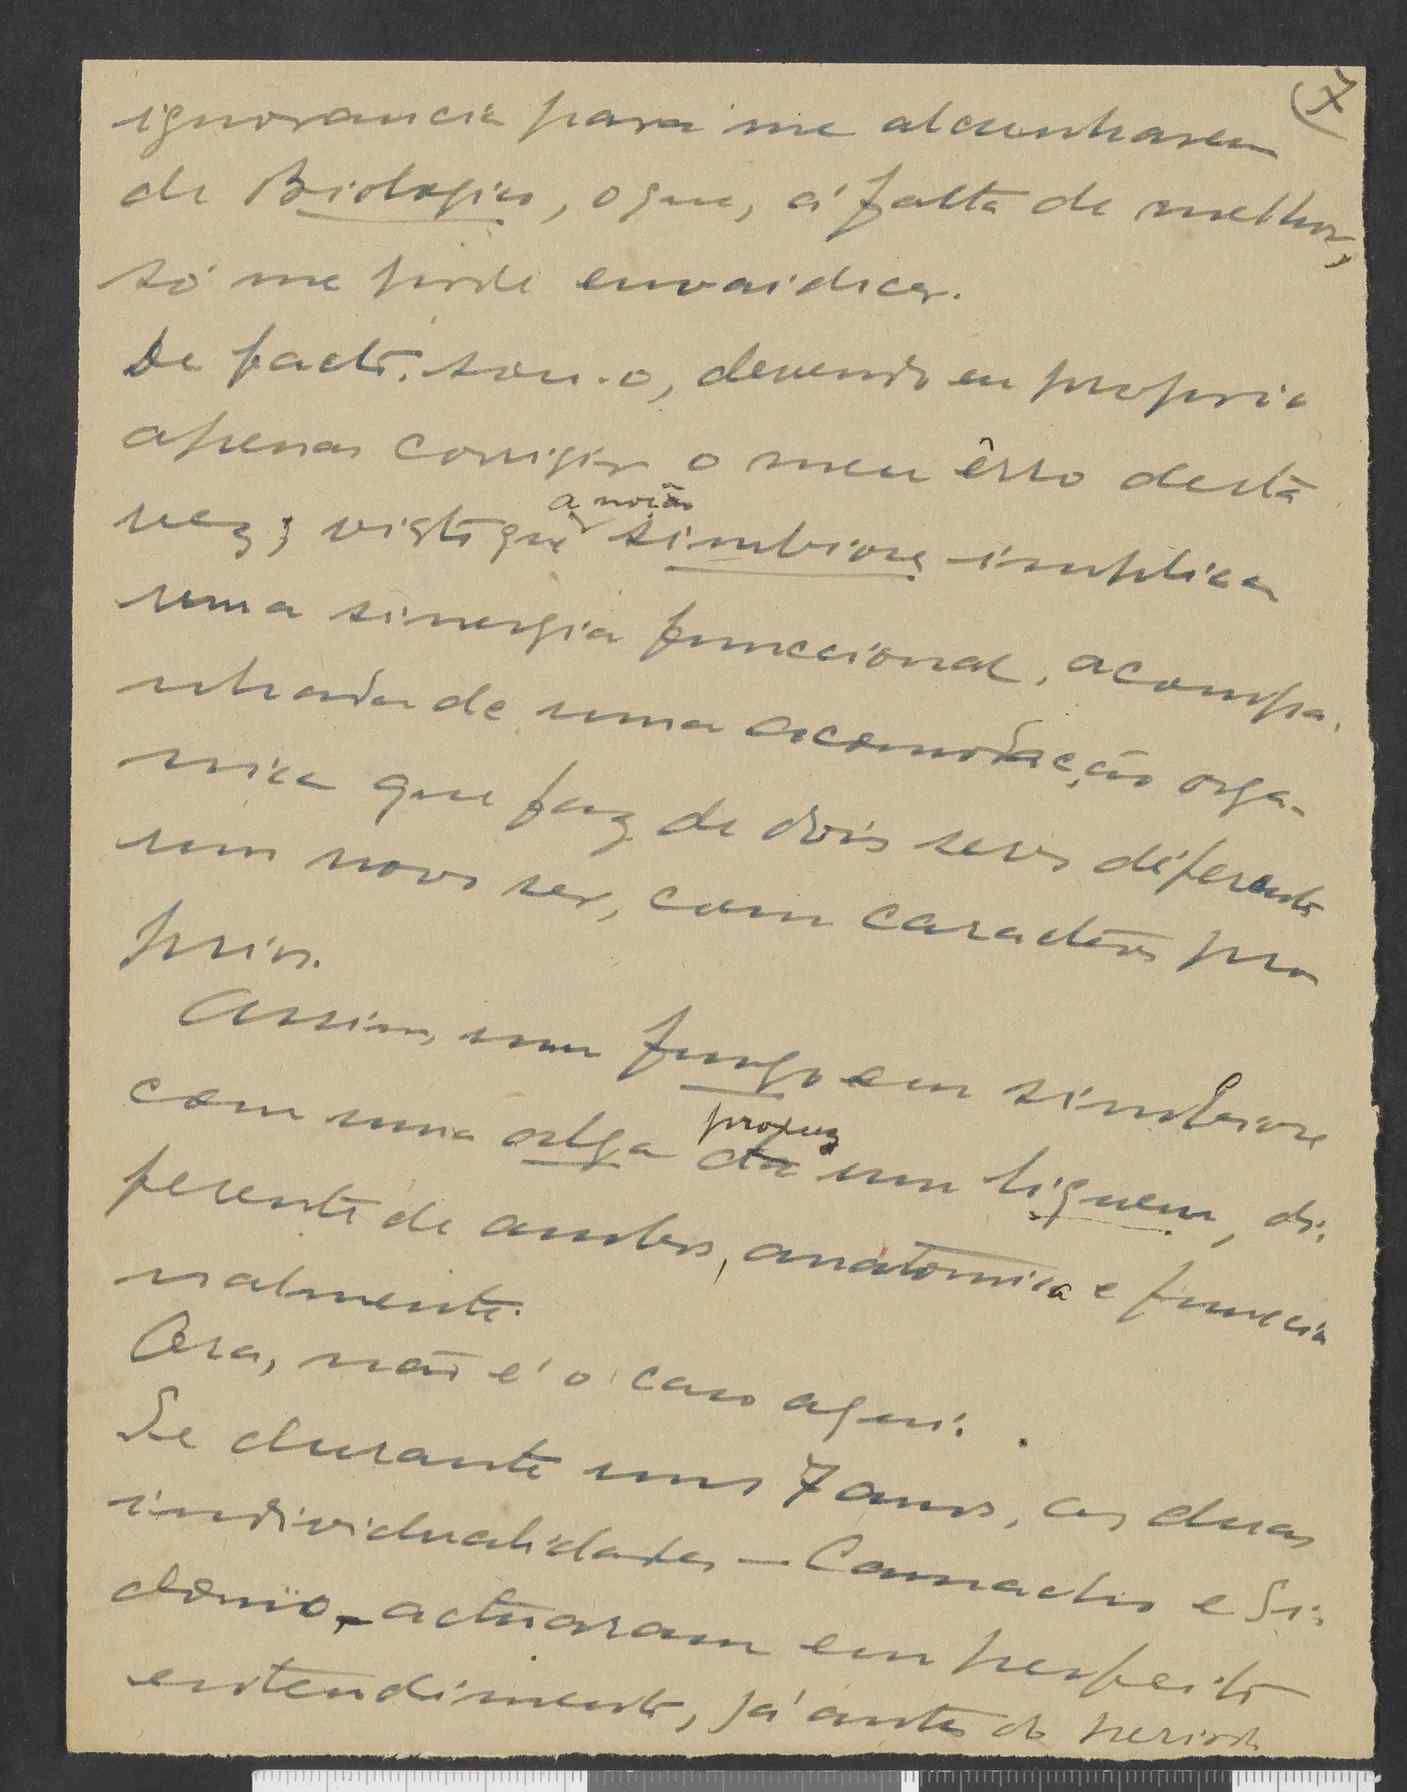 7
ignorancia para me alcunharem
de Biologico, o que, á falta de melhor,
só me pode envaidecer.
De facto, sou-o, devendo eu proprio
apenas corrigir o meu êrro desta
vez; visto que a noção simbiose implica
uma sinergia funccional, acompa-
nhada de uma acomodação orga-
nica que faz de dois seres diferentes
um novo ser, com caracteres pro
prios.
Assim, um fungo em simbiose
com uma alga dá produz um liquem, di-
ferente de ambos, anatomica e funccio
nalmente.
Ora, não é o caso aqui.
Se durante uns 7 anos, as duas
individualidades — Camacho e Si-
dónio — actuaram em perfeito
entendimento, já antes do periodo